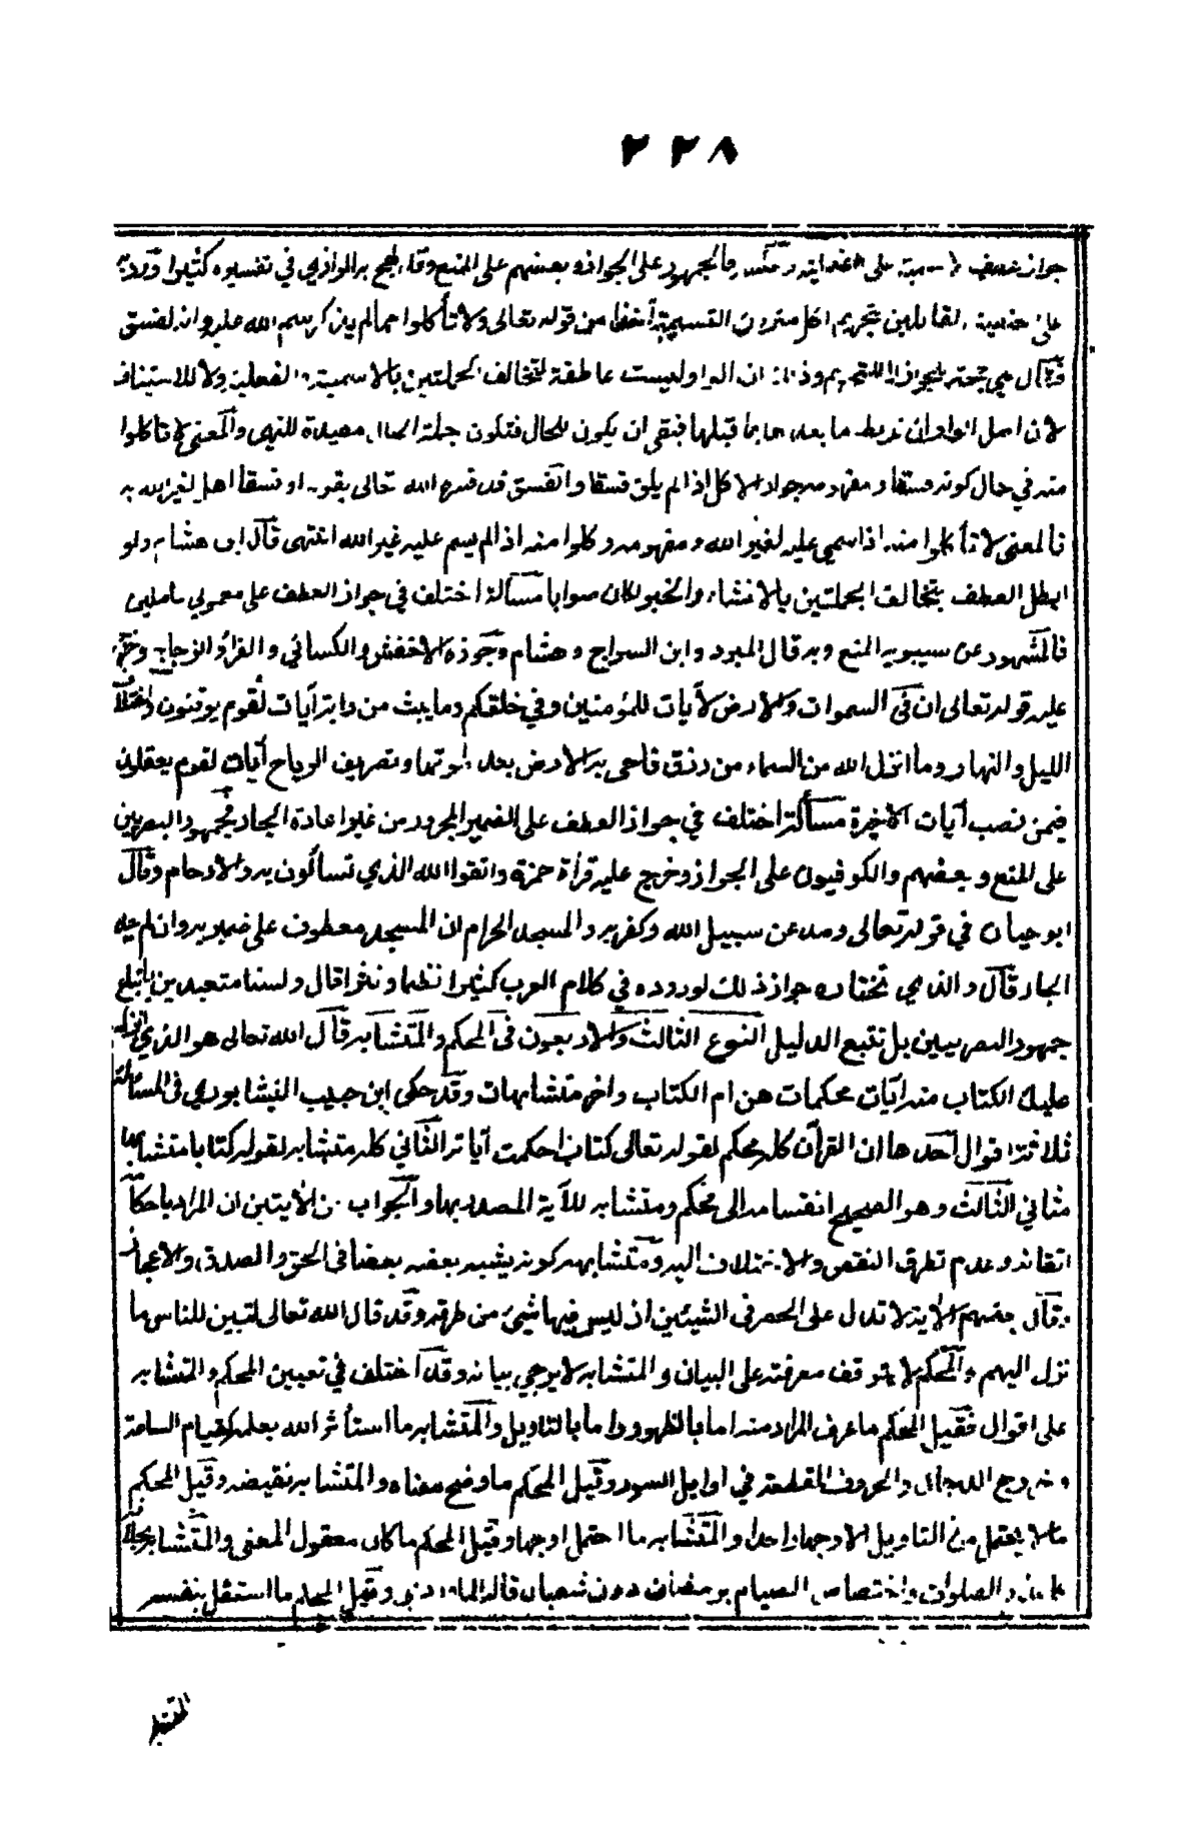 ٢٢٨
جواز عطف الاسمية على الفعلية وعكسه فالجمهور على الجواز وبعضهم على المنع وقد لهج به الرازي في تفسيره كثيرا ورد به
على الحنفية القائلين بتحريم اكل متروك التسمية أخذا من قوله تعالى ولا تأكلوا مما لم يذكر اسم الله عليه وانه لفسق
فقال هي حجة للجواز لا للتحريم وذلك ان الواو ليست عاطفة لتخالف الجملتين بالاسمية والفعلية ولا للاستيناف
لأن اصل الواو ان تربط ما بعدها بما قبلها فبقي ان يكون للحال فتكون جملة الحال مفيدة للنهي والمعنى لا تأكلوا
منه في حال كونه فسقا ومفهومه جواز الاكل إذا لم يكن فسقا والفسق قد فسره الله تعالى بقوله او فسقا اهل لغير الله به
فالمعنى لا تأكلوا منه اذا سمي عليه لغير الله ومفهومه وكلوا منه اذا لم يسم عليه غير الله انتهى قال ابن هشام ولو
ابطل العطف بتخالف الجملتين بالانشاء والخبر لكان صوابا مسألة اختلف في جواز العطف على معمولي عاملين
فالمشهور عن سيبويه المنع وبه قال المبرد وابن السراج وهشام وجوزه الاخفش والكسائي والفراء والزجاج وخرج
عليه قوله تعالى ان في السموات والارض لآيات للمؤمنين وفي خلقكم وما يبث من دابة آيات لقوم يوقنون واختلاف
الليل والنهار وما انزل الله من السماء من رزق فاحى به الارض بعد موتها وتصريف الرياح آيات لقوم يعقلون
فيمن نصب آيات الأخيرة مسألة اختلف في جواز العطف على الضمير المجرور من غير اعادة الجار فجمهور البصريين
على المنع وبعضهم والكوفيون على الجواز وخرج عليه قرأة حمزة واتقوا الله الذي تسألون به والارحام وقال
ابو حيان في قوله تعالى وصد عن سبيل الله وكفر به والمسجد الحرام ان المسجد معطوف على ضمير به وان لم يعد
الجار قال والذي نختاره جواز ذلك لوروده في كلام العرب كثيرا نظما ونثرا قال ولسنا متعبدين باتباع
جمهور البصريين بل نتبع الدليل النوع الثالث والاربعون في المحكم والمتشابه قال الله تعالى هو الذي انزل
عليك الكتاب منه آيات محكمات هن ام الكتاب واخر متشابهات وقد حكى ابن حبيب النيشابوري في المسألة
ثلاثة اقوال أحدها ان القرآن كله محكم لقوله تعالى كتاب احكمت آياته الثاني كله متشابه لقوله كتابا متشابها
مثاني الثالث وهو الصحيح انقسامه الى محكم ومتشابه للآية المصدر بها والجواب عن الأيتين ان المراد باحكامه
اتقانه وعدم تطرق النقص والاختلاف اليه ومتشابهه كونه يشبه بعضه بعضا في الحق والصدق والاعجاز
وقال بعضهم الأية لا تدل على الحصر في الشيئين اذ ليس فيها شيئ من طرقه وقد قال الله تعالى لتبين للناس ما
نزل اليهم والمحكم لا يتوقف معرفته على البيان والمتشابه لا يرجي بيانه وقد اختلف في تعيين المحكم والمتشابه
على اقوال فقيل المحكم ما عرف المراد منه اما بالظهور واما بالتاويل والمتشابه ما استأثر الله بعلمه كقيام الساعة
وخروج الدجال والحروف المقطعة في اوايل السور وقيل المحكم ما وضح معناه والمتشابه نقيضه وقيل المحكم
ما لا يحتمل من التاويل الا وجها واحدا والمتشابه ما احتمل اوجها وقيل المحكم ما كان معقول المعنى والمتشابه بخلافه
كاعداد الصلوات واختصاص الصيام برمضان دون شعبان قاله الماوردي وقيل المحكم ما استقل بنفسه